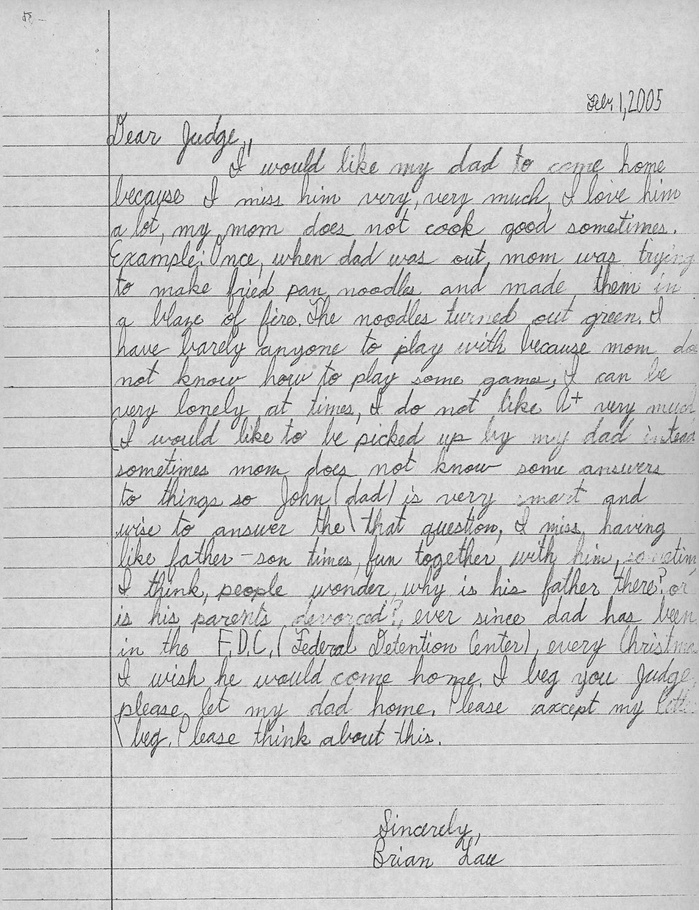 Feb. 1, 2005
Dear Judge,,
I would like my dad to come home
because I miss him very, very much, I love him
a lot, my mom does not cook good sometimes.
Example: Once, when dad was out, mom was trying
to make fried pan noodles and made them in
a blaze of fire. The noodles turned out green. I
have barely anyone to play with because mom do
not know how to play some games, I can be
very lonely at times, I do not like A+ very much
(I would like to be picked up by my dad instead
sometimes mom does not know some answers
to things so John (dad) is very smart and
wise to answer the that question, I miss having
like father-son times, fun together with him, sometim
I think, people wonder, why is his father there? or
is his parents devorced?, ever since dad has been
in the F.D.C. (Federal Detention Center), every Christma
I wish he would come home. I beg you Judge,
please let my dad home. Please axcept my lette
beg. Please think about this.
Sincerely,
Brian Lau